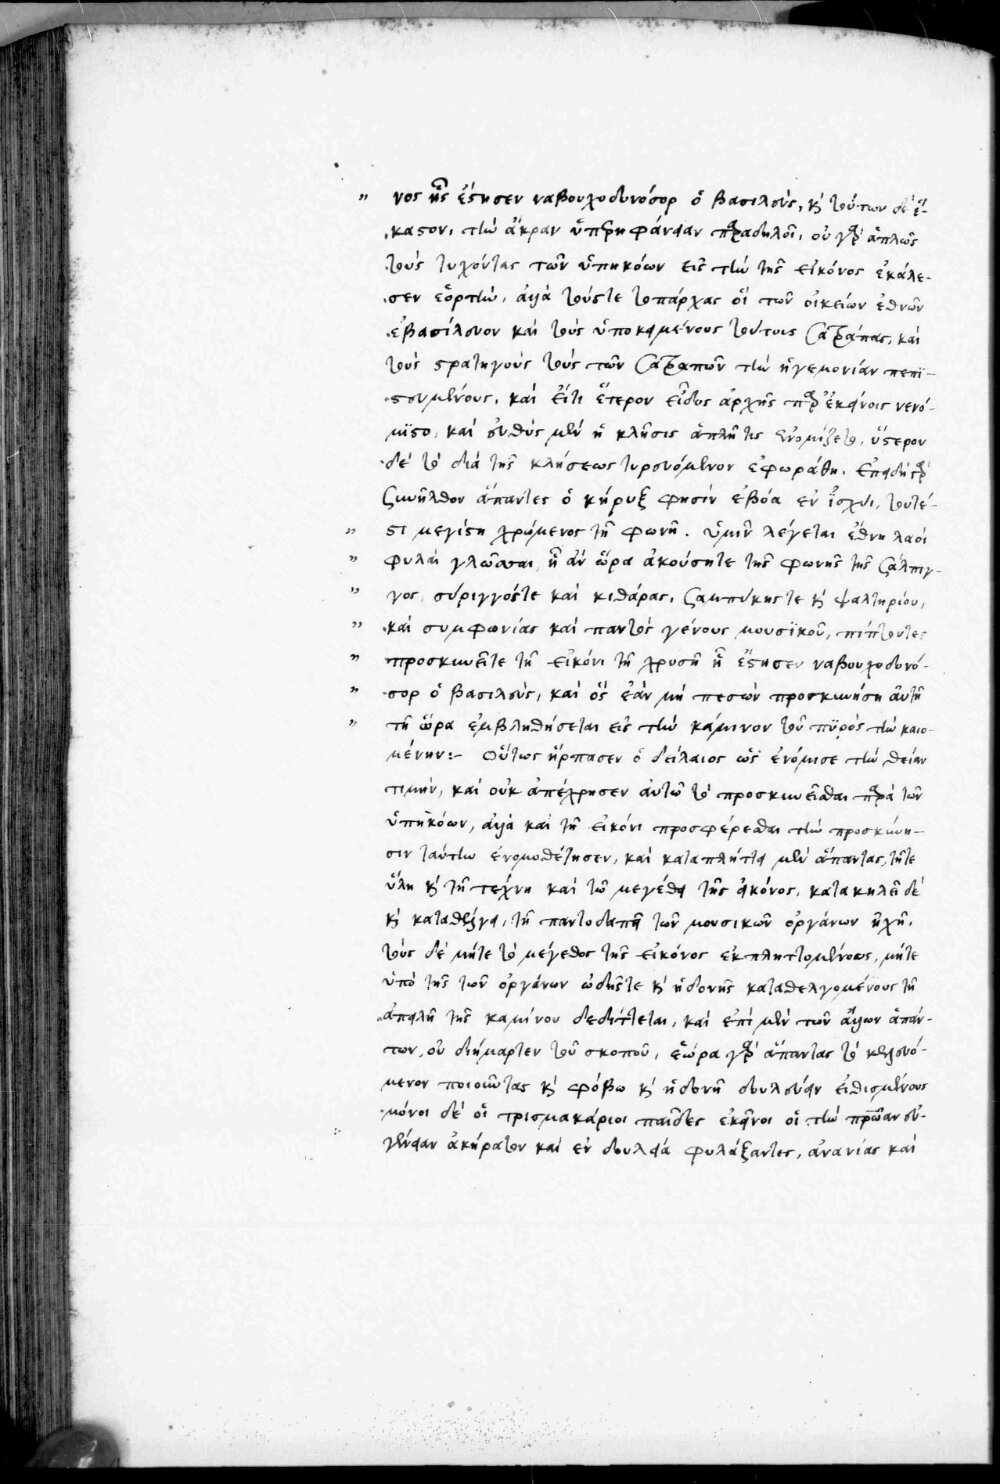 " νος ἧς ἔστησεν ναβουχοδονόσορ ὁ βασιλεύς, κ τούτων δὲ ἕ-
καστον, τὴν ἄκραν ὑπερηφάνειαν παραδηλοῖ, οὐ γὰρ ἁπλῶς
τοὺς τυχόντας τῶν ὑπηκόων εἰς τὴν τῆς εἰκόνος ἐκάλε-
σεν ἑορτὴν, ἀλλὰ τούς τε τοπάρχας οἳ τῶν οἰκείων ἐθνῶν
ἐβασίλευον καὶ τοὺς ὑποκειμένους τούτοις σατράπας, καὶ
τοὺς στρατηγοὺς τοὺς τῶν σατραπῶν τὴν ἡγεμονίαν πεπι-
στευμένους, καὶ εἴ τι ἕτερον εἶδος ἀρχῆς παρ' ἐκείνοις νενό-
μιστο, καὶ εὐθὺς μὲν ἡ κλῆσις ἁπλῆ τις ἐνομίζετο, ὕστερον
δὲ τὸ διὰ τῆς κλήσεως τυρευόμενον ἐφωράθη. ἐπειδὴ γὰρ
συνῆλθον ἅπαντες ὁ κήρυξ φησὶν ἐβόα ἐν ἰσχύι, τουτέ-
" στι μεγίστῃ χρώμενος τῇ φωνῇ. ὑμῖν λέγεται ἔθνη λαοὶ
" φυλαὶ γλῶσσαι, ᾗ ἂν ὥρᾳ ἀκούσητε τῆς φωνῆς τῆς σάλπιγ-
" γος, σύριγγός τε καὶ κιθάρας, σαμβύκης τε κ ψαλτηρίου,
" καὶ συμφωνίας καὶ παντὸς γένους μουσϊκοῦ, πίπτοντες
" προσκυνεῖτε τῇ εἰκόνι τῇ χρυσῇ ᾗ ἔστησεν ναβουχοδονό-
" σορ ὁ βασιλεὺς, καὶ ὃς ἐὰν μὴ πεσὼν προσκυνήσῃ αὐτῇ
" τῇ ὥρᾳ ἐμβληθήσεται εἰς τὴν κάμινον τοῦ πυρὸς τὴν καιο-
μένην:- Οὕτως ἥρπασεν ὁ δείλαιος ὡς ἐνόμισε τὴν θείαν
τιμὴν, καὶ οὐκ ἀπέχρησεν αὐτῶ τὸ προσκυνεῖσθαι παρὰ τῶν
ὑπηκόων, ἀλλὰ καὶ τῇ εἰκόνι προσφέρεσθαι τὴν προσκύνη-
σιν ταύτην ἐνομοθέτησεν, καὶ καταπλήττει μὲν ἅπαντας, τῇ τε
ὕλῃ κ τῇ τέχνῃ καὶ τῶ μεγέθει τῆς εἰκόνος, κατακηλεῖ δὲ
κ καταθέλγει, τῇ παντοδαπῇ τῶν μουσικῶν ὀργάνων ἠχῇ.
τοὺς δὲ μήτε τὸ μέγεθος τῆς εἰκόνος ἐκπληττομένους, μήτε
ὑπὸ τῆς τῶν ὀργάνων ὠδῆς τε κ ἡδονῆς καταθελγομένους τῇ
ἀπειλῇ τῆς καμίνου δεδίττεται, καὶ ἐπὶ μὲν τῶν ἄλλων ἁπάν-
των, οὐ διήμαρτεν τοῦ σκοποῦ, ἑώρα γὰρ ἅπαντας τὸ κελευό-
μενον ποιοῦντας κ φόβω κ ἡδονῇ δουλεύειν εἰθισμένους
μόνοι δὲ οἱ τρισμακάριοι παῖδες ἐκεῖνοι οἳ τὴν πρώαν εὐ-
γένειαν ἀκήρατον καὶ ἐν δουλείᾳ φυλάξαντες, ἀνανίας καὶ